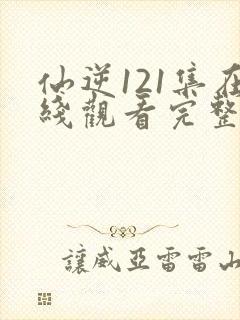 仙逆121集在
綫觀看完整
讓威亞雷雷山